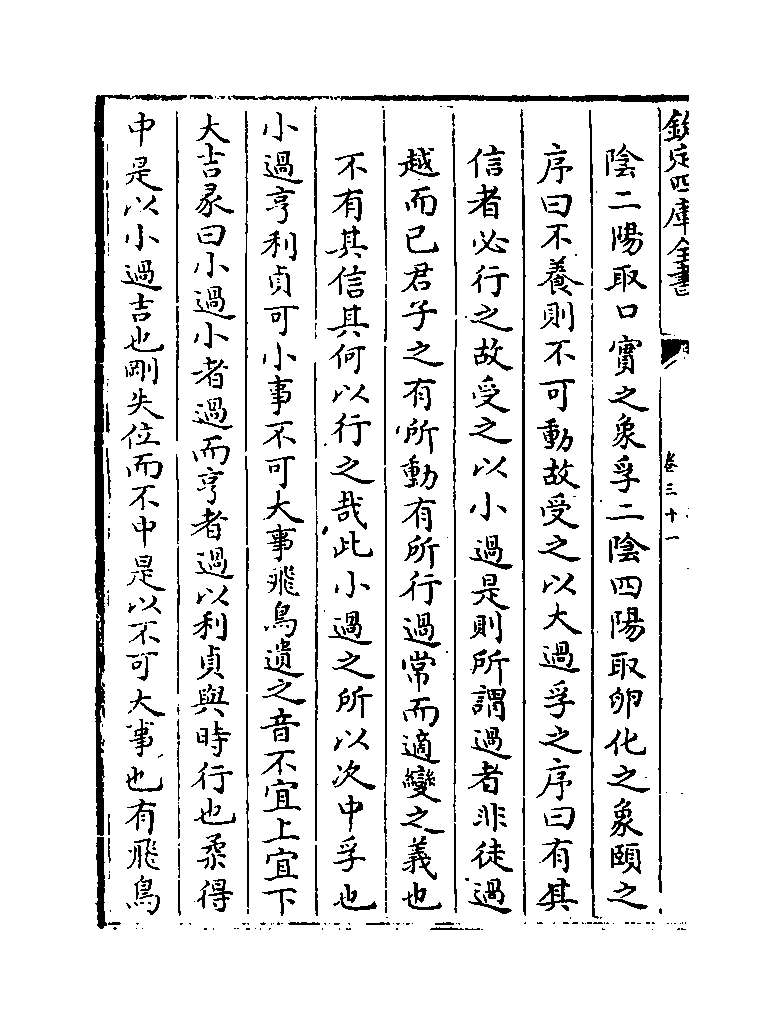 欽定四庫全書
卷三十一
陰二陽取口實之象孚二陰四陽取卵化之象頤之
序曰不養則不可動故受之以大過孚之序曰有其
信者必行之故受之以小過是則所謂過者非徒過
越而已君子之有所動有所行過常而適變之義也
不有其信其何以行之哉此小過之所以次中孚也
小過亨利貞可小事不可大事飛鳥遺之音不宜上宜下
大吉彖曰小過小者過而亨者過以利貞與時行也柔得
中是以小過吉也剛失位而不中是以不可大事也有飛鳥